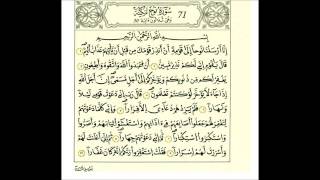 سُورَةُ نُوحٍ مَكِّيَّةٌ 71
بِسْمِ اللَّهِ الرَّحْمَٰنِ الرَّحِيمِ
إِنَّا أَرْسَلْنَا نُوحًا إِلَىٰ قَوْمِهِ أَنْ أَنذِرْ قَوْمَكَ مِن قَبْلِ أَن يَأْتِيَهُمْ عَذَابٌ أَلِيمٌ ١
قَالَ يَٰقَوْمِ إِنِّي لَكُمْ نَذِيرٌ مُّبِينٌ ٢ أَنِ اعْبُدُوا اللَّهَ وَاتَّقُوهُ وَأَطِيعُونِ ٣
يَغْفِرْ لَكُم مِّن ذُنُوبِكُمْ وَيُؤَخِّرْكُمْ إِلَىٰ أَجَلٍ مُّسَمًّى إِنَّ أَجَلَ اللَّهِ
إِذَا جَاءَ لَا يُؤَخَّرُ لَوْ كُنتُمْ تَعْلَمُونَ ٤ قَالَ رَبِّ إِنِّي دَعَوْتُ قَوْمِي لَيْلًا
وَنَهَارًا ٥ فَلَمْ يَزِدْهُمْ دُعَاءِي إِلَّا فِرَارًا ٦ وَإِنِّي كُلَّمَا دَعَوْتُهُمْ
لِتَغْفِرَ لَهُمْ جَعَلُوا أَصَابِعَهُمْ فِي آذَانِهِمْ وَاسْتَغْشَوْا ثِيَابَهُمْ وَأَصَرُّوا
وَاسْتَكْبَرُوا اسْتِكْبَارًا ٧ ثُمَّ إِنِّي دَعَوْتُهُمْ جِهَارًا ٨ ثُمَّ إِنِّي أَعْلَنتُ لَهُمْ
وَأَسْرَرْتُ لَهُمْ إِسْرَارًا ٩ فَقُلْتُ اسْتَغْفِرُوا رَبَّكُمْ إِنَّهُ كَانَ غَفَّارًا ١٠